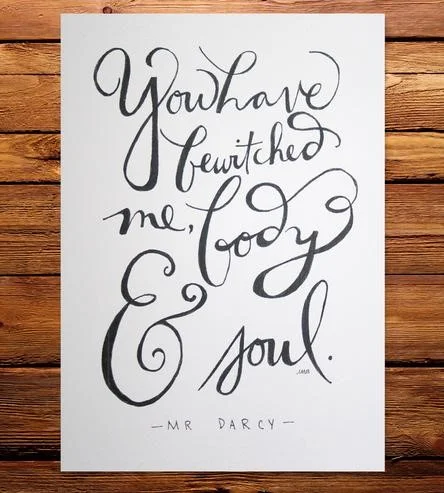 You have
bewitched
me, body
& soul.
— MR DARCY —